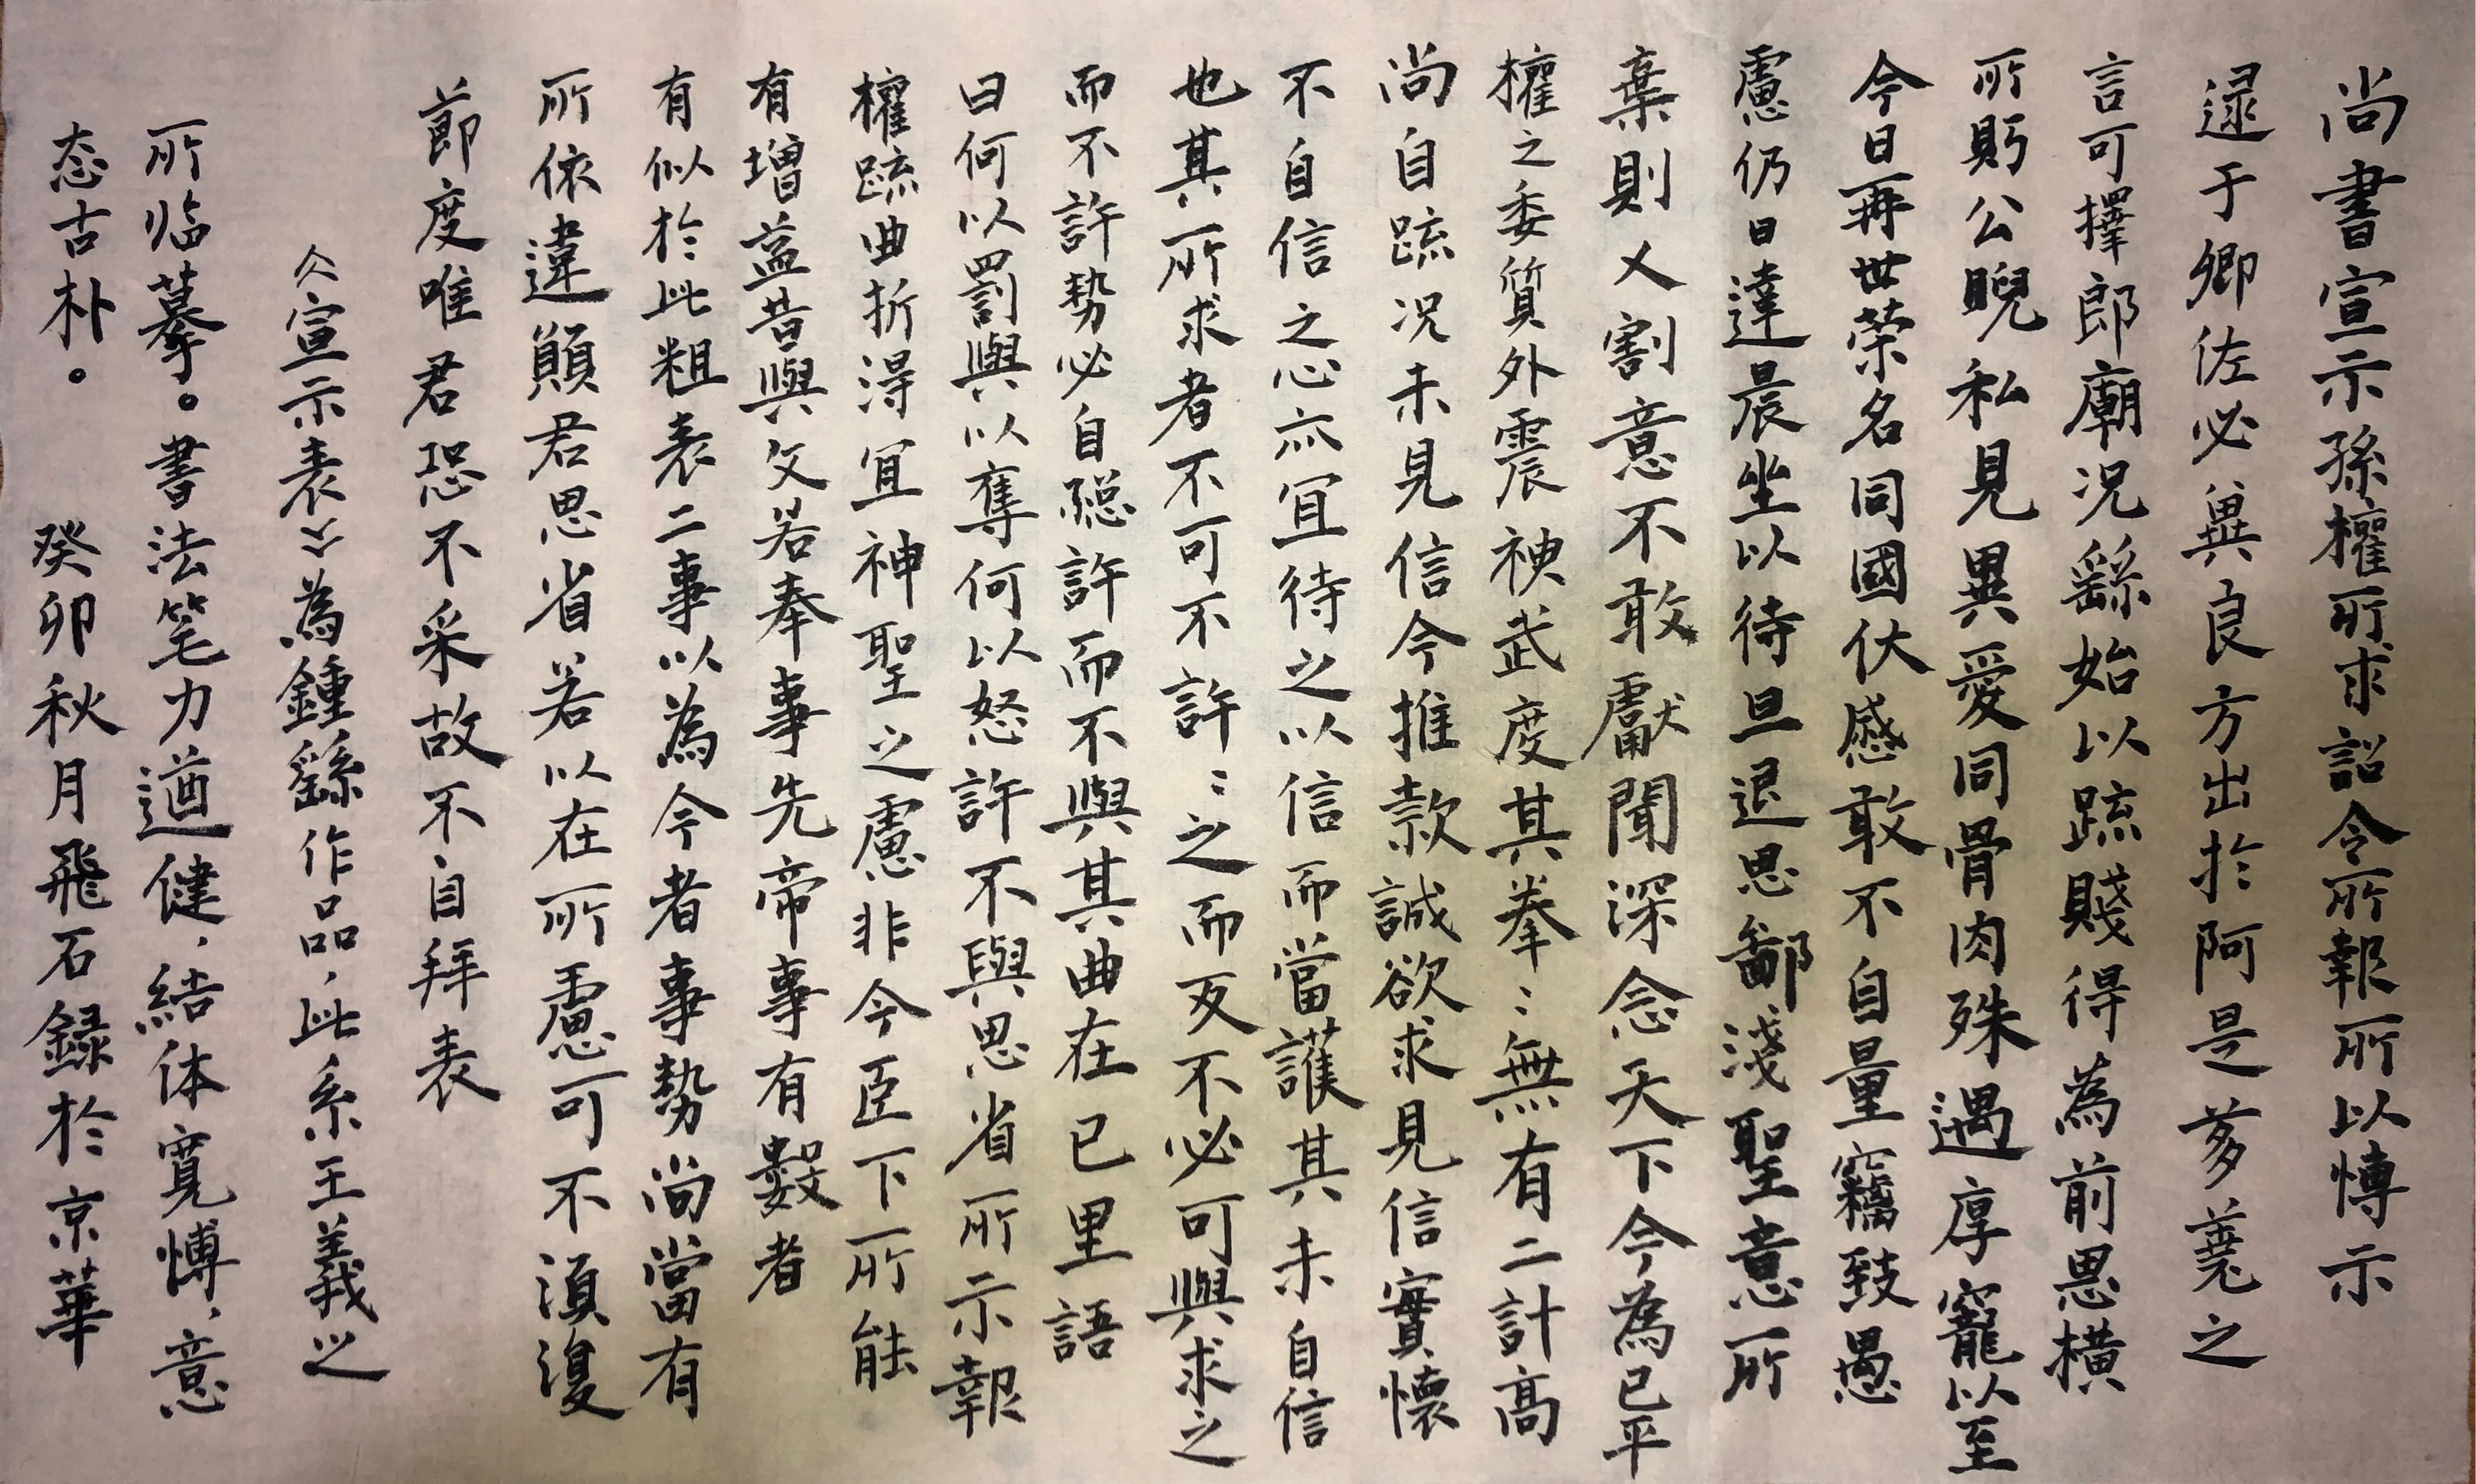 尚書宣示孫權所求詔令所報所以愽示
逯于卿佐必兾良方出於阿是芻蕘之
言可擇郎廟況繇始以疏賤得為前恩橫
所眄公睨私見異愛同骨肉殊遇厚寵以至
今日再世榮名同國休慼敢不自量竊致愚
慮仍日達晨坐以待旦退思鄙淺聖意所
棄則乂割意不敢獻聞深念天下今為已平
權之委質外震神武度其拳〻無有二計高
尚自疏況未見信今推款誠欲求見信實懷
不自信之心亦宜待之以信而當護其未自信
也其所求者不可不許〻之而反不必可與求之
而不許勢必自絕許而不與其曲在已里語
曰何以罰與以奪何以怒許不與思省所示報
權疏曲折得宜神聖之慮非今臣下所能
有增益昔與文若奉事先帝事有數者
有似於此粗表二事以為今者事勢尚當有
所依違願君思省若以在所慮可不須復
節度唯君恐不采故不自拜表
《宣示表》為鍾繇作品，此系王義之
所临摹。書法笔力遒健，結体寬愽，意
态古朴。 癸卯秋月飛石録於京華